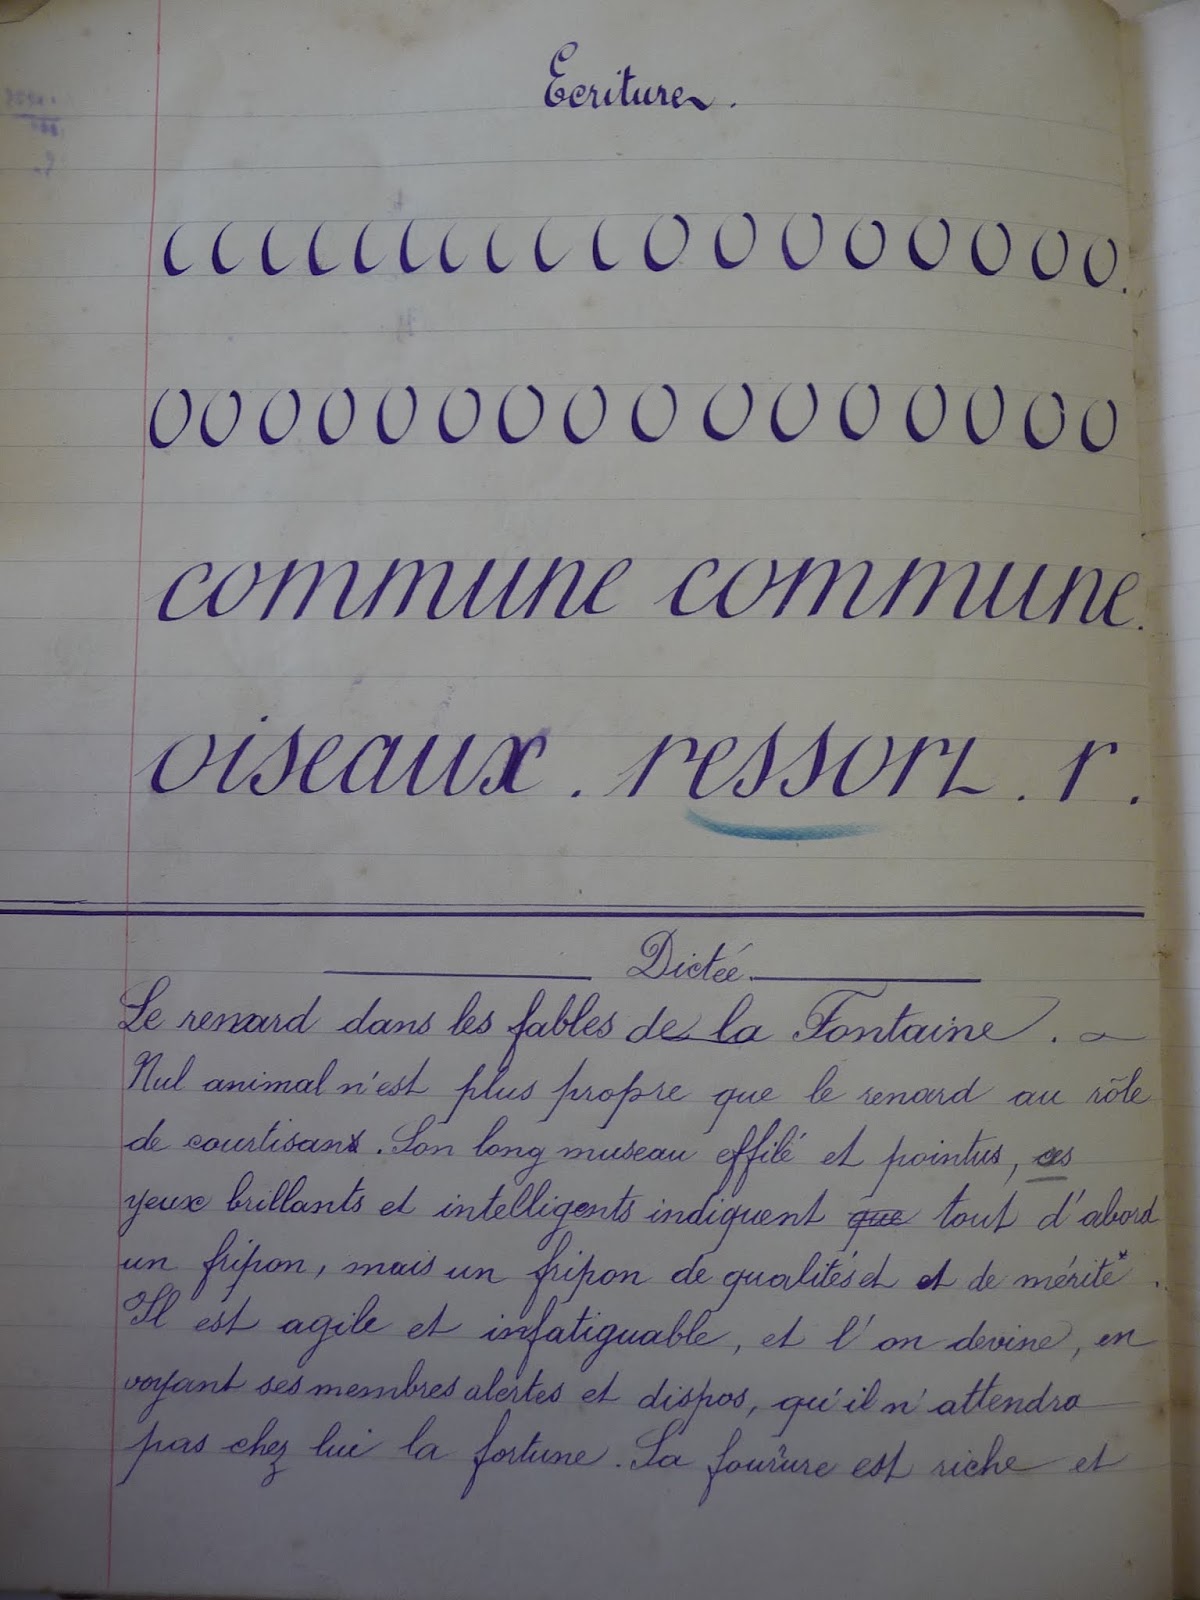 Ecriture.
c c c c c c c c c c o o o o o o o o.
o o o o o o o o o o o o o o o o
commune commune.
oiseaux. ressort. r.
Dictée
Le renard dans les fables de la Fontaine.
Nul animal n'est plus propre que le renard au rôle
de courtisan. Son long museau effilé et pointus, ces
yeux brillants et intelligents indiquent que tout d'abord
un fripon, mais un fripon de qualités et et de mérite.
Il est agile et infatiguable, et l'on devine, en
voyant ses membres alertes et dispos, qu'il n'attendra
pas chez lui la fortune. Sa fourure est riche et